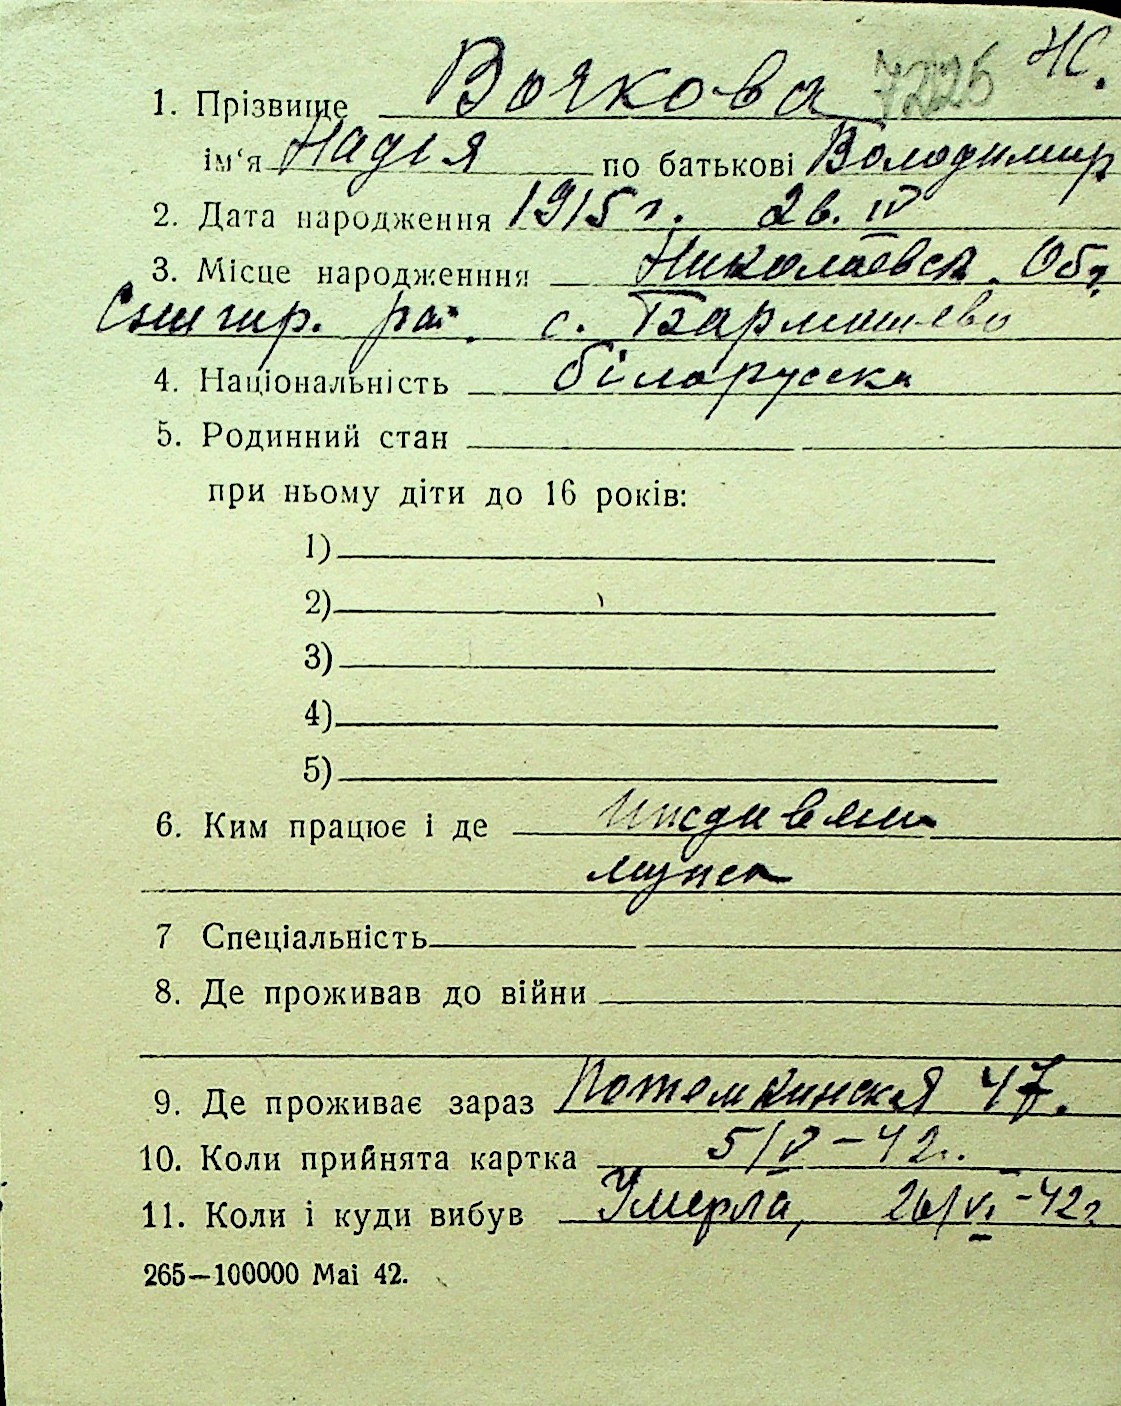 Ж.
7225
1. Прізвище Вочкова
ім‘я Надія по батькові Володимир
2. Дата народження 1915 г. 26. IV
3. Місце народженння Николаевск. Обл.
Снигир. рай. с. Бармашево
4. Національність білорусска
5. Родинний стан
при ньому діти до 16 років:
1)
2)
3)
4)
5)
6. Ким працює і де Иждивен.
мужа
7 Спеціальність
8. Де проживав до війни
9. Де проживає зараз Потемкинская 47.
10. Коли прийнята картка 5/V – 42г.
11. Коли і куди вибув Умерла, 26/VI – 42г
265—100000 Маі 42.